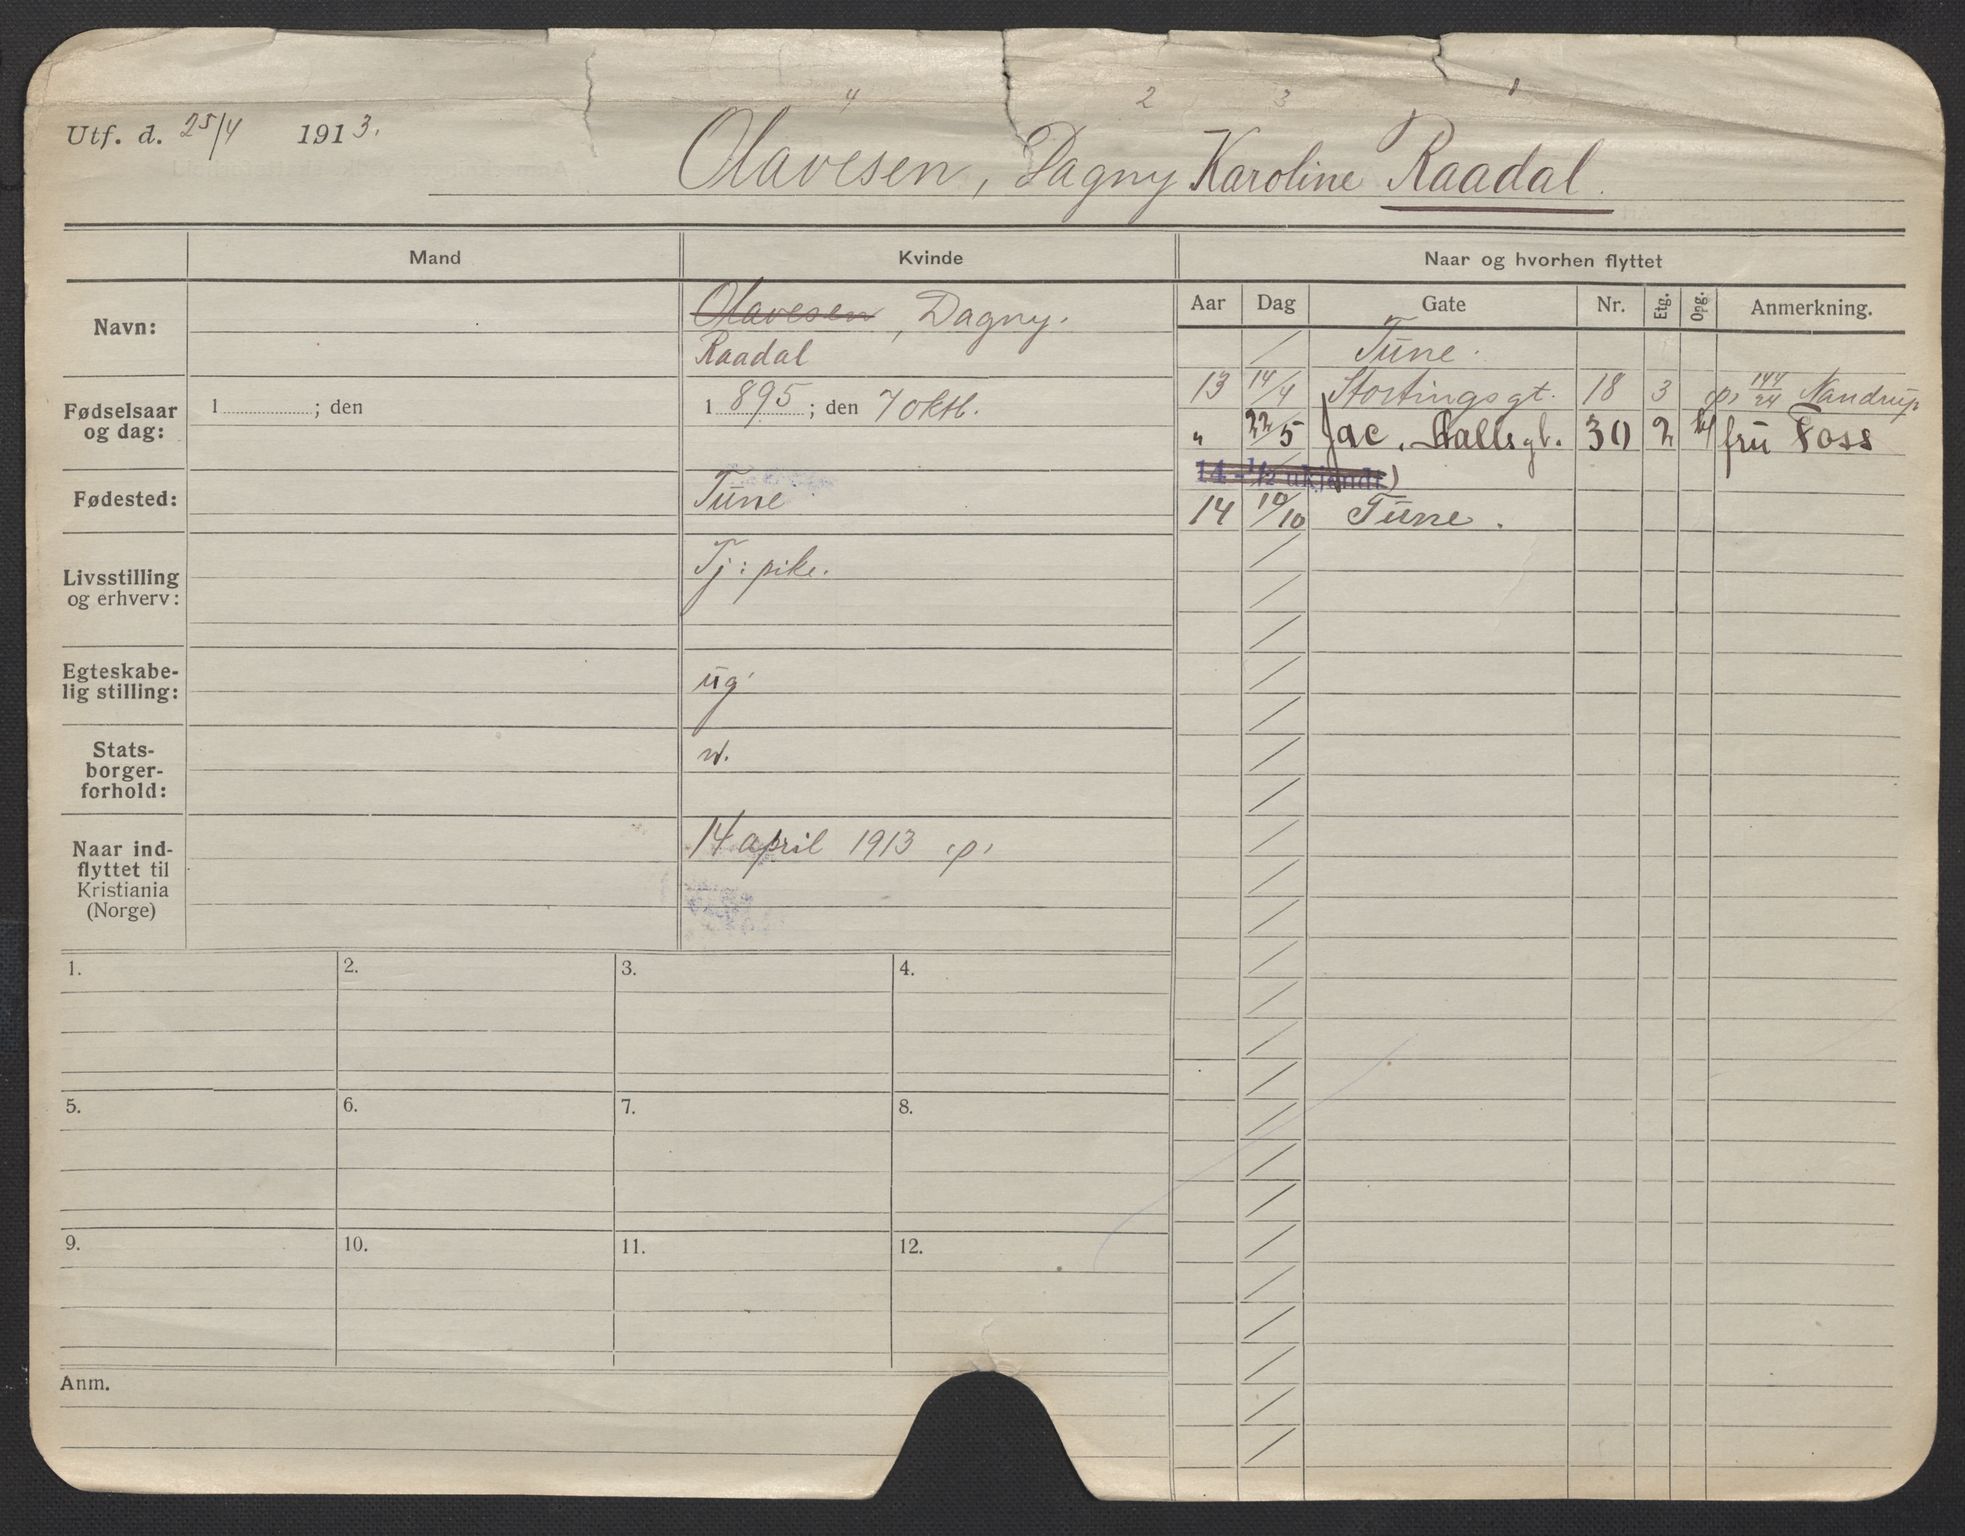 4 2 3 1
Utf. d. 25/4 1913.
Olavesen, Dagny Karoline Raadal.
Mand Kvinde Naar og hvorhen flyttet
Navn: Olavesen, Dagny.
Raadal
Fødselsaar og dag: 1 ; den 1895 ; den 7 oktb.
Fødested: Tune
Livsstilling og erhverv: Tj: pike.
Egteskabe-
lig stilling: ug
Stats-
borger-
forhold: n.
Naar ind-
flyttet til
Kristiania
(Norge) 14 april 1913 p.
Aar Dag Gate Nr. Etg. Opg. Anmerkning.
Tune.
13 14/4 Stortingsgt. 18 3 p. 144/24 Nandrup
" 22/5 Jac. Aallsgt. 30 2 fru Foss
14 - 1/2 ukjendt)
14 10/10 Tune.
1. 2. 3. 4.
5. 6. 7. 8.
9. 10. 11. 12.
Anm.